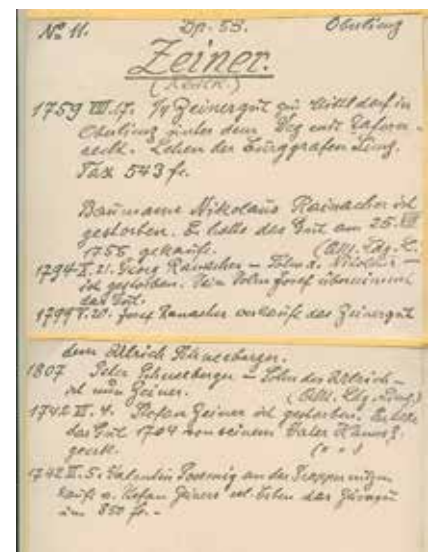 No 11. Dp. 53. Oberlienz
Zeiner.
1759 VIII. 17. 1/4 Zeinergut zu Mitteldorf in
Oberlienz unter dem Weg mit Tafern-
recht. Lehen der Burggrafen Lienz.
Tax 543 fr.
Baumann Nikolaus Rainacher ist
gestorben. Er hatte das Gut am 25.
1755 gekauft.
1794 Georg Ranacher – Sohn d. Nikolaus –
ist gestorben. Sein Sohn Josef übernimmt
das Gut.
1799 V. 20. Josef Ranacher verkauft das Zeinergut
dem Ulrich Schneeberger.
1807 Peter Schneeberger – Sohn des Ulrich –
ist nun Zeiner.
1742 II. 4. Stefan Zeiner ist gestorben. Er hatte
das Gut 1704 von seinem Vater Hanns Z.
geerbt. (" ")
1742 II. 5. Valentin an der
kauft v. Stefan Zeiners sel. Erben das
um 850 fr. –